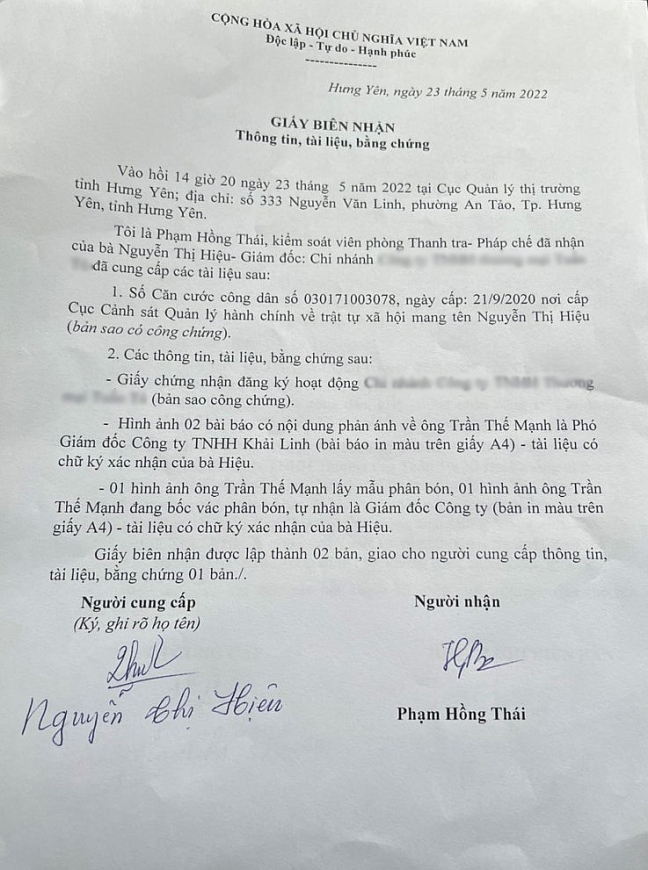 CỘNG HÒA XÃ HỘI CHỦ NGHĨA VIỆT NAM
Độc lập - Tự do - Hạnh phúc
---------------
Hưng Yên, ngày 23 tháng 5 năm 2022
GIẤY BIÊN NHẬN
Thông tin, tài liệu, bằng chứng
Vào hồi 14 giờ 20 ngày 23 tháng 5 năm 2022 tại Cục Quản lý thị trường
tỉnh Hưng Yên; địa chỉ: số 333 Nguyễn Văn Linh, phường An Tảo, Tp. Hưng
Yên, tỉnh Hưng Yên.
Tôi là Phạm Hồng Thái, kiểm soát viên phòng Thanh tra- Pháp chế đã nhận
của bà Nguyễn Thị Hiệu- Giám đốc: Chi nhánh
đã cung cấp các tài liệu sau:
1. Số Căn cước công dân số 030171003078, ngày cấp: 21/9/2020 nơi cấp
Cục Cảnh sát Quản lý hành chính về trật tự xã hội mang tên Nguyễn Thị Hiệu
(bản sao có công chứng).
2. Các thông tin, tài liệu, bằng chứng sau:
- Giấy chứng nhận đăng ký hoạt động
(bản sao công chứng).
- Hình ảnh 02 bài báo có nội dung phản ánh về ông Trần Thế Mạnh là Phó
Giám đốc Công ty TNHH Khải Linh (bài báo in màu trên giấy A4) - tài liệu có
chữ ký xác nhận của bà Hiệu.
- 01 hình ảnh ông Trần Thế Mạnh lấy mẫu phân bón, 01 hình ảnh ông Trần
Thế Mạnh đang bốc vác phân bón, tự nhận là Giám đốc Công ty (bản in màu trên
giấy A4) - tài liệu có chữ ký xác nhận của bà Hiệu.
Giấy biên nhận được lập thành 02 bản, giao cho người cung cấp thông tin,
tài liệu, bằng chứng 01 bản./.
Người cung cấp
(Ký, ghi rõ họ tên)
Người nhận
Nguyễn Thị Hiệu
Phạm Hồng Thái